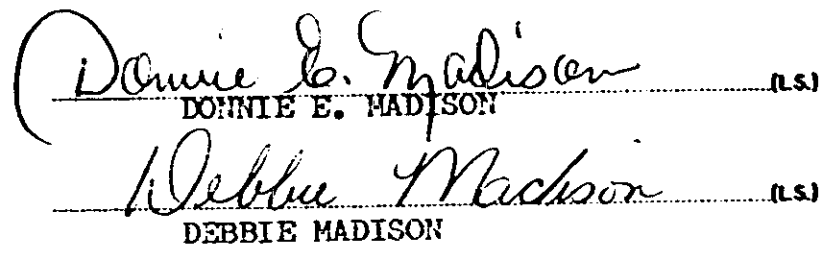 Donnie E. Madison (L.S.)
DONNIE E. MADISON
Debbie Madison (L.S.)
DEBBIE MADISON